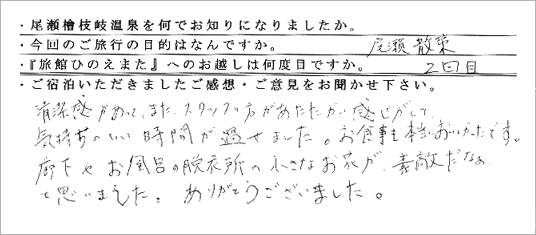 ・尾瀬檜枝岐温泉を何でお知りになりましたか。
・今回のご旅行の目的はなんですか。 尾瀬散策
・『旅館ひのえまた』へのお越しは何度目ですか。 2回目
・ご宿泊いただきましたご感想・ご意見をお聞かせ下さい。
清潔感があって、また、スタッフの方があたたかい感じがして
気持ちのいい時間が過せました。お食事も本当においしかったです。
廊下やお風呂の脱衣所の小さなお花が、素敵だなぁ
と思いました。ありがとうございました。